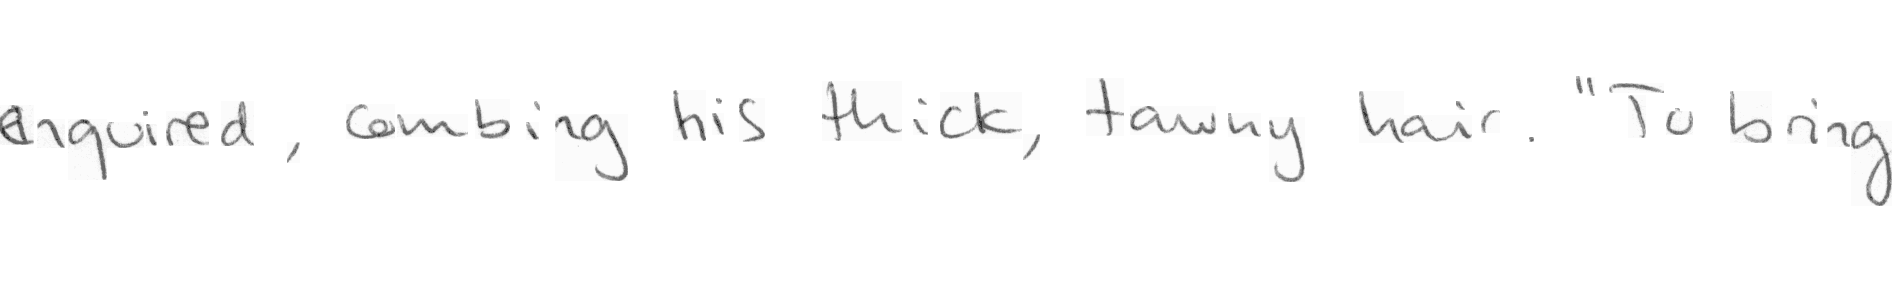 enquired, combing his thick, tawny hair. "To bring